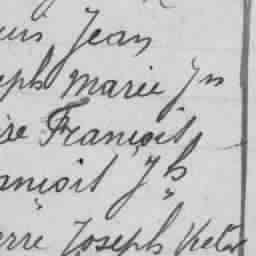 uis Jean
eph Marie Jn
re François
ançois Jh
erre Joseph Victor